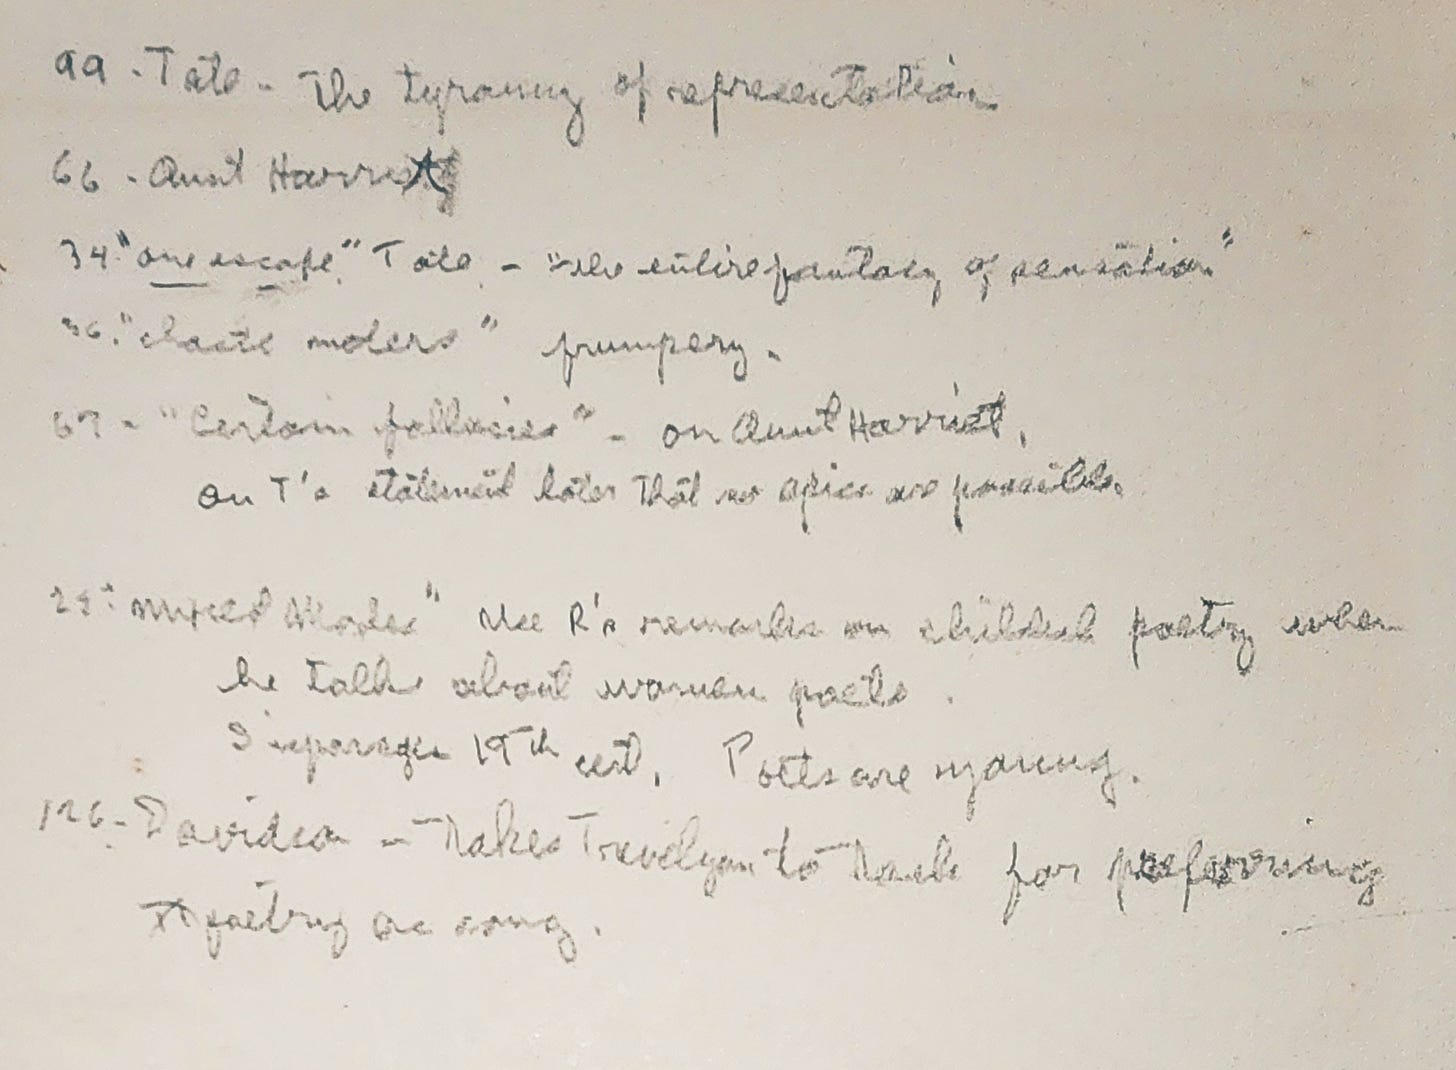 99 - Tate - The tyranny of representation
66 - Aunt Harriet
34 "one escape" Tate - "the entire fantasy of sensation"
36. "chaste moders" frumpery.
67 - "Certain fallacies" - on Aunt Harriet,
on T's statement later that no epics are possible.
25 "Mixed Modes" Use R's remarks on childish poetry when
he talks about women poets.
Disparages 19th cent. Poets are young.
126 - Davidson - Takes Trevelyan to task for preferring
poetry as song.